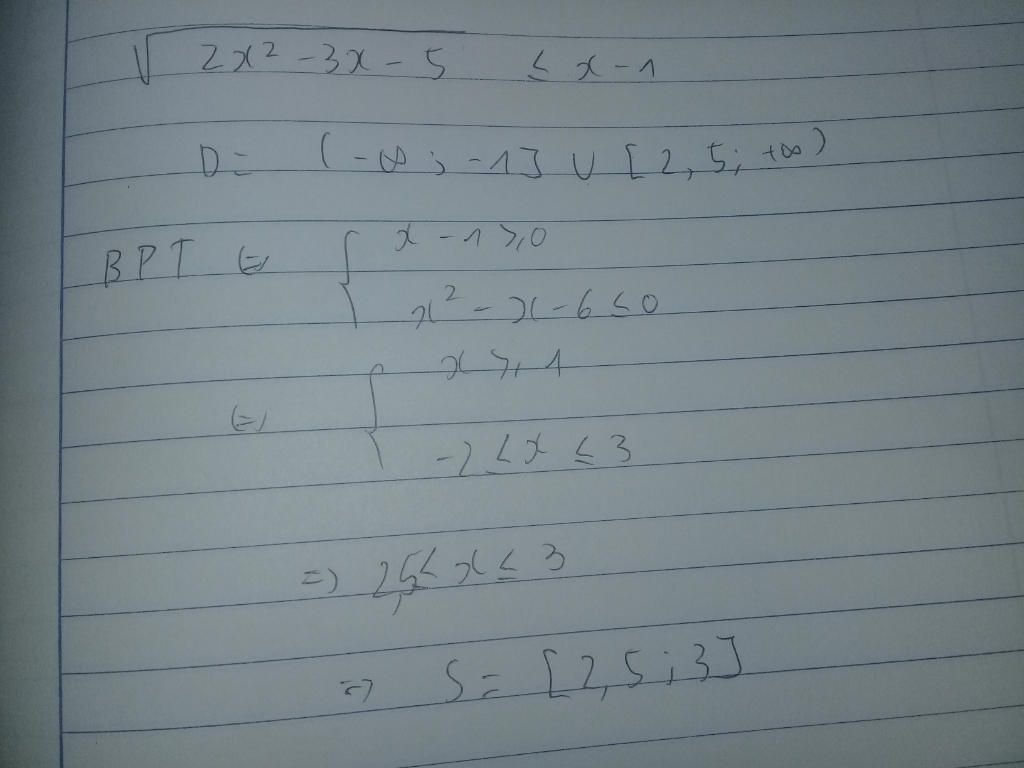 √(2x² - 3x - 5) ≤ x - 1
D = (-∞ ; -1] ∪ [2,5 ; +∞)
BPT ⇔ { x - 1 ≥ 0
x² - x - 6 ≤ 0
⇔ { x ≥ 1
-2 ≤ x ≤ 3
⇒ 2,5 ≤ x ≤ 3
⇒ S = [2,5 ; 3]